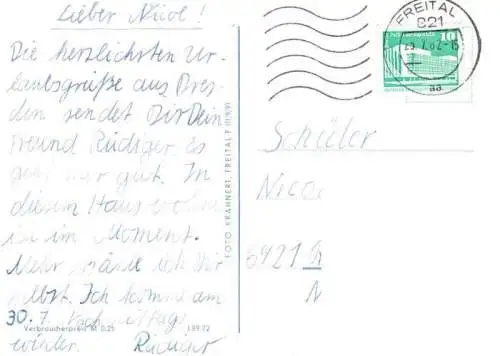 Lieber Nico!
Die herzlichsten Ur-
laubsgrüße aus Dres-
den sendet Dir Dein
Freund Rüdiger. Es
mir gut. In
diesem Haus wohne
ich im Moment.
Mehr ich Dir
selbst. Ich komme am
30. 7. nachmittags
wieder. Rüdiger
Verbraucherpreis M 0,21
FOTO: KRAHNERT, FREITAL F
FREITAL
821
10
aa
Schüler
Nico